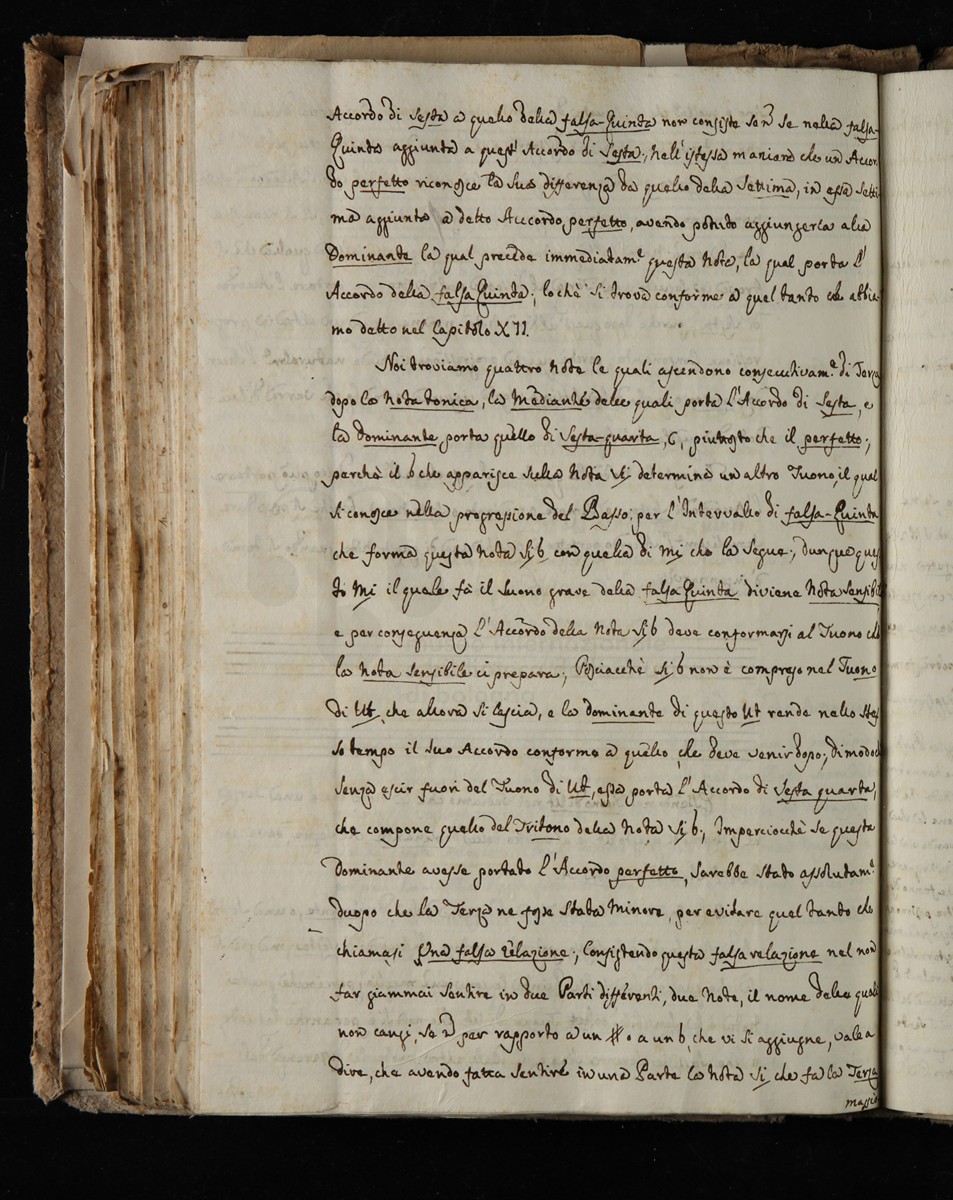 Accordo di Sesta a quello della falsa-Quinta non consiste se nõ se nella falsa-
Quinta aggiunta a quest' Accordo di Sesta; nell'istessa maniera che un Accor-
do perfetto riconosce la sua differenza da quello della Settima, in essa Setti-
ma aggiunta a detto Accordo perfetto, avendo potuto aggiungerla alla
Dominante la qual precede immediatam.e questa Nota, la qual porta l'
Accordo della falsa Quinta; lochè si trova conforme a quel tanto che abbia-
mo detto nel Capitolo XII.
Noi troviamo quattro Note le quali ascendono consecutivam.e di Terza
dopo la Nota tonica, la Mediante delle quali porta l'Accordo di Sesta, e
la Dominante porta quello di Sesta-quarta, piuttosto che il perfetto;
perchè il b che apparisce sulla Nota Si determina un altro Tuono, il qual
si conosce nella progressione del Basso; per l'Intervallo di falsa-Quinta
che forma questa Nota Si b con quella di Mi che la segue; dunque ques-
to Mi il quale fà il Suono grave della falsa Quinta diviene Nota sensibil
e per conseguenza l'Accordo della Nota Si b deve conformarsi al Tuono che
la Nota sensibile ci prepara; Posciacchè Si b non è compreso nel Tuono
di Ut, che allora si lascia, e la dominante di questo Ut rende nello stes-
so tempo il suo Accordo conforme a quello che deve venir dopo; dimodoche
senza escir fuori del Tuono di Ut, essa porta l'Accordo di Sesta quarta,
che compone quello del Tritono della Nota Si b; Imperciocchè se questa
Dominante avesse portato l'Accordo perfetto, sarebbe stato assolutam.e
duopo che la Terza ne fosse stata Minore, per evitare quel tanto che
chiamasi Una falsa relazione; Consistendo questa falsa relazione nel non
far giammai sentire in due Parti differenti, due Note, il nome delle quali
non cangi, se nõ per rapporto a un # o a un b, che vi si aggiugne, vale a
dire, che avendo fatta sentire in una Parte la Nota Si che fa la Terza